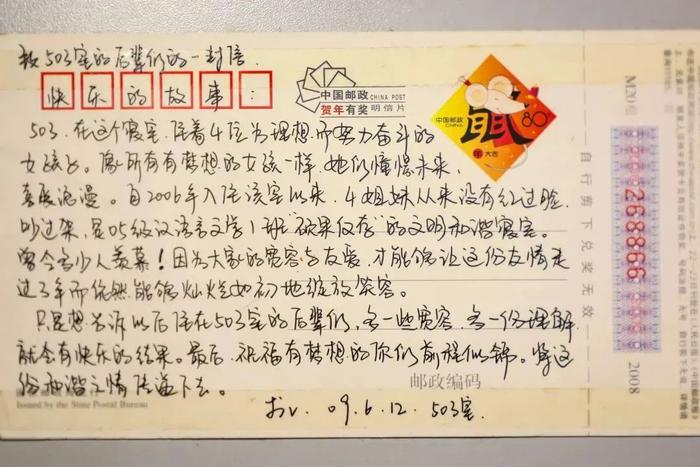 致503室的后辈们的一封信.
快乐的故事：
中国邮政 CHINA POST
贺年有奖 明信片
中国邮政
CHINA
80
大吉
503.在这个寝室,住着4位为理想而努力奋斗的
女孩子。像所有有梦想的女孩一样,她们憧憬未来、
喜爱浪漫。自2006年入住该室以来,4姐妹从来没有红过脸,
吵过架,是05级汉语言文学1班"硕果仅存"的文明和谐寝室。
曾令多少人羡慕！因为大家的宽容与友爱,才能够让这份友情走
过3年而依然能够灿烂如初地绽放笑容。
只是想告诉以后住在503室的后辈们,多一些宽容,多一份理解
就会有快乐的结果。最后,祝福有梦想的你们前程似锦。将这
份和谐之情传递下去。
邮政编码
Issued by the State Postal Bureau
09.6.12. 503室.
自行剪下兑奖无效
268866
2008